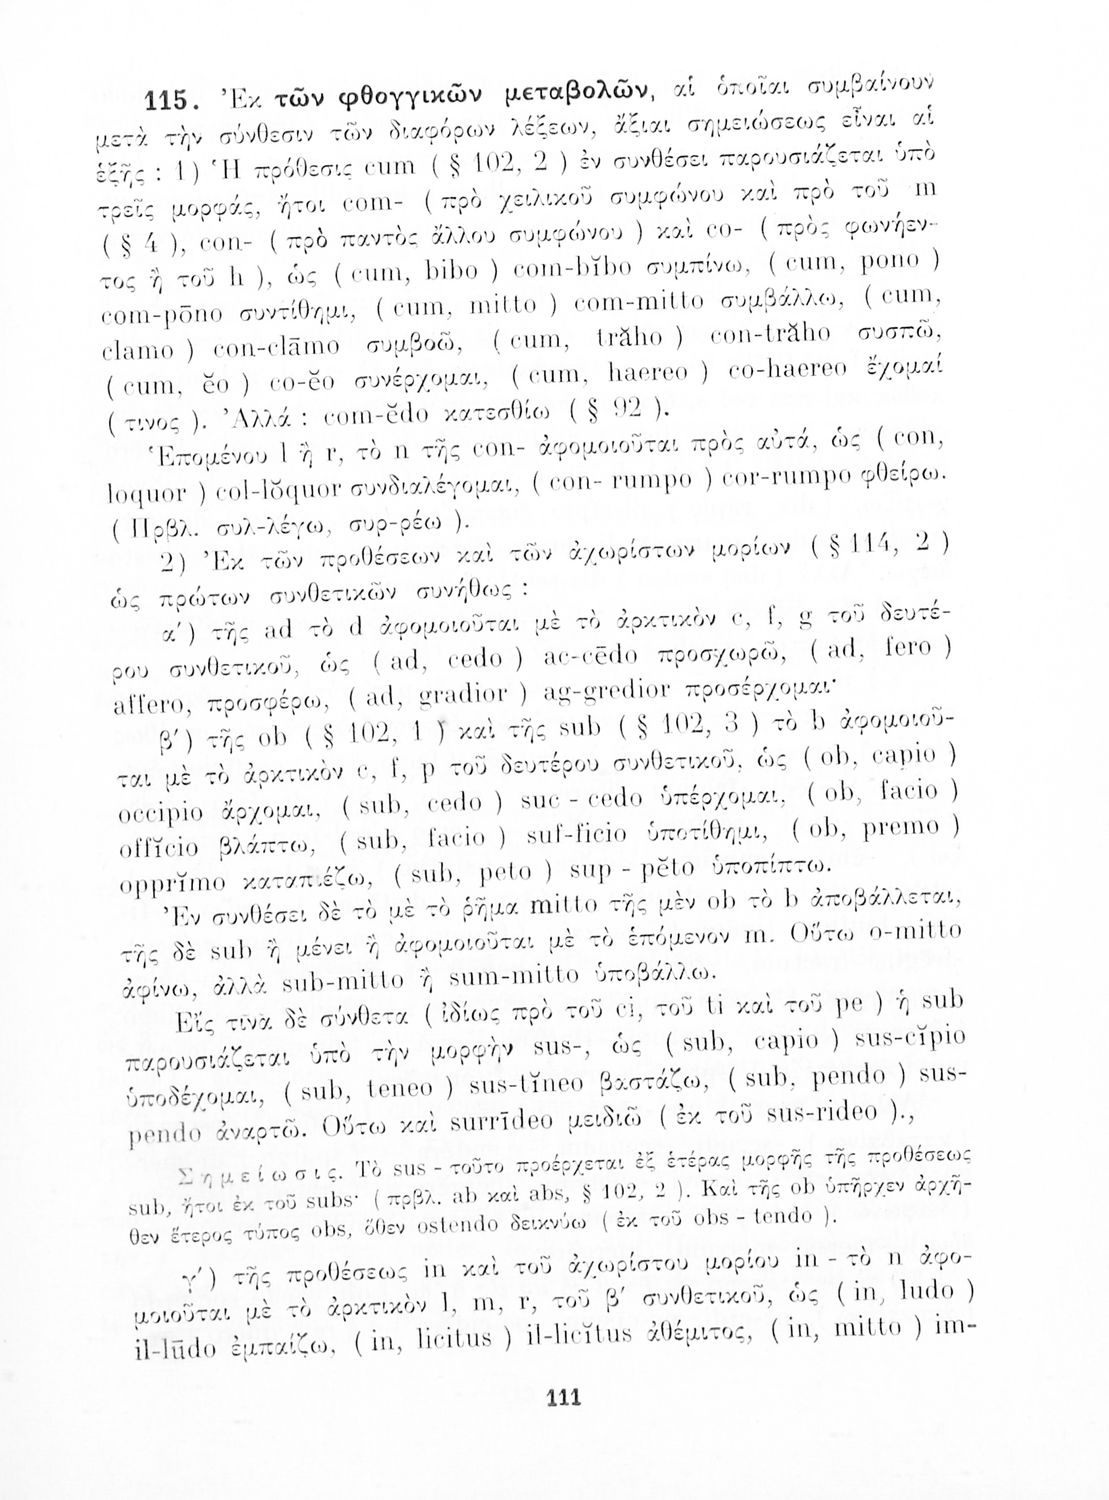 115. Ἐκ τῶν φθογγικῶν μεταβολῶν, αἱ ὁποῖαι συμβαίνουν
μετὰ τὴν σύνθεσιν τῶν διαφόρων λέξεων, ἄξιαι σημειώσεως εἶναι αἱ
ἑξῆς : 1) Ἡ πρόθεσις cum ( § 102, 2 ) ἐν συνθέσει παρουσιάζεται ὑπὸ
τρεῖς μορφάς, ἤτοι com- ( πρὸ χειλικοῦ συμφώνου καὶ πρὸ τοῦ m
( § 4 ), con- ( πρὸ παντὸς ἄλλου συμφώνου ) καὶ co- ( πρὸς φωνήεν-
τος ἢ τοῦ h ), ὡς ( cum, bibo ) com-bĭbo συμπίνω, ( cum, pono )
com-pōno συντίθημι, ( cum, mitto ) com-mitto συμβάλλω, ( cum,
clamo ) con-clāmo συμβοῶ, ( cum, trăho ) con-trăho συσπῶ,
( cum, ĕo ) co-ĕo συνέρχομαι, ( cum, haereo ) co-haereo ἔχομαί
( τινος ). Ἀλλά : com-ĕdo κατεσθίω ( § 92 ).
Ἑπομένου l ἢ r, τὸ n τῆς con- ἀφομοιοῦται πρὸς αὐτά, ὡς ( con,
loquor ) col-lŏquor συνδιαλέγομαι, ( con- rumpo ) cor-rumpo φθείρω.
( Πρβλ. συλ-λέγω, συρ-ρέω ).
2) Ἐκ τῶν προθέσεων καὶ τῶν ἀχωρίστων μορίων ( § 114, 2 )
ὡς πρώτων συνθετικῶν συνήθως :
α΄) τῆς ad τὸ d ἀφομοιοῦται μὲ τὸ ἀρκτικὸν c, f, g τοῦ δευτέ-
ρου συνθετικοῦ, ὡς ( ad, cedo ) ac-cēdo προσχωρῶ, ( ad, fero )
affero, προσφέρω, ( ad, gradior ) ag-gredior προσέρχομαι·
β΄) τῆς ob ( § 102, 1 ) καὶ τῆς sub ( § 102, 3 ) τὸ b ἀφομοιοῦ-
ται μὲ τὸ ἀρκτικὸν c, f, p τοῦ δευτέρου συνθετικοῦ, ὡς ( ob, capio )
occipio ἄρχομαι, ( sub, cedo ) suc - cedo ὑπέρχομαι, ( ob, facio )
offĭcio βλάπτω, ( sub, facio ) suf-ficio ὑποτίθημι, ( ob, premo )
opprĭmo καταπιέζω, ( sub, peto ) sup - pĕto ὑποπίπτω.
Ἐν συνθέσει δὲ τὸ μὲ τὸ ῥῆμα mitto τῆς μὲν ob τὸ b ἀποβάλλεται,
τῆς δὲ sub ἢ μένει ἢ ἀφομοιοῦται μὲ τὸ ἑπόμενον m. Οὕτω o-mitto
ἀφίνω, ἀλλὰ sub-mitto ἢ sum-mitto ὑποβάλλω.
Εἴς τινα δὲ σύνθετα ( ἰδίως πρὸ τοῦ ci, τοῦ ti καὶ τοῦ pe ) ἡ sub
παρουσιάζεται ὑπὸ τὴν μορφὴν sus-, ὡς ( sub, capio ) sus-cĭpio
ὑποδέχομαι, ( sub, teneo ) sus-tĭneo βαστάζω, ( sub, pendo ) sus-
pendo ἀναρτῶ. Οὕτω καὶ surrīdeo μειδιῶ ( ἐκ τοῦ sus-rideo ).,
Σημείωσις. Τὸ sus - τοῦτο προέρχεται ἐξ ἑτέρας μορφῆς τῆς προθέσεως
sub, ἤτοι ἐκ τοῦ subs· ( πρβλ. ab καὶ abs, § 102, 2 ). Καὶ τῆς ob ὑπῆρχεν ἀρχῆ-
θεν ἕτερος τύπος obs, ὅθεν ostendo δεικνύω ( ἐκ τοῦ obs - tendo ).
γ΄) τῆς προθέσεως in καὶ τοῦ ἀχωρίστου μορίου in - τὸ n ἀφο-
μοιοῦται μὲ τὸ ἀρκτικὸν l, m, r, τοῦ β΄ συνθετικοῦ, ὡς ( in, ludo )
il-lūdo ἐμπαίζω, ( in, licitus ) il-licĭtus ἀθέμιτος, ( in, mitto ) im-
111